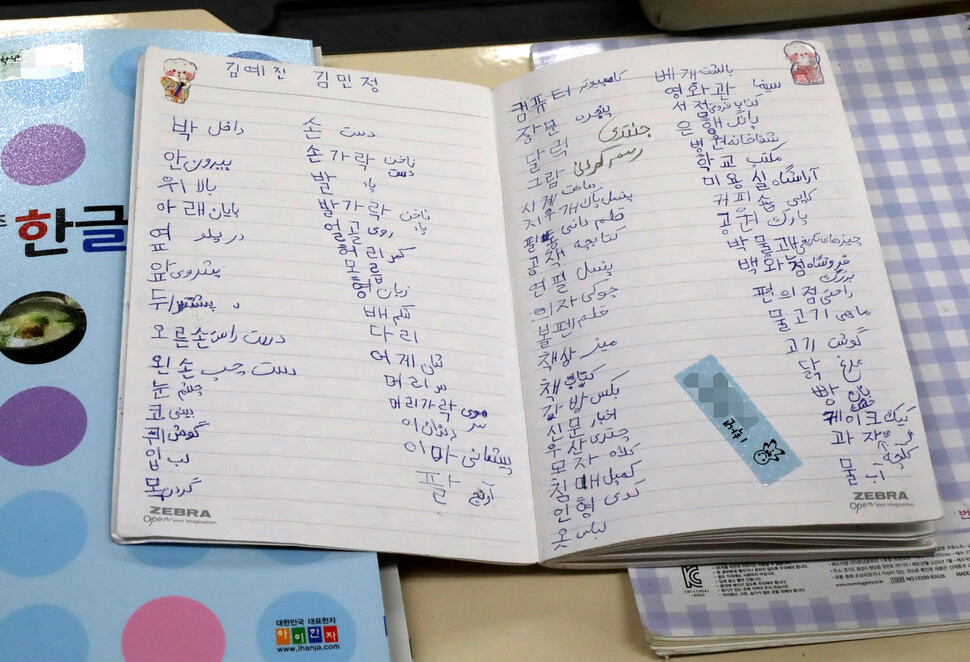 한글
대한민국 대표한자
아이한자
www.ihanja.com
김예진 김민정
박 داخل
안 بیرون
위 بالا
아래 پایان
옆 در پهلو
앞 پیشروی
뒤
오른손 دست راست
왼손 دست چپ
눈 چشم
코 بینی
귀 گوش
입 لب
목 گردن
손 دست
손가락 ناخن دست
발 پا
발가락 ناخن پا
얼굴 روی
허리 کمر
몸
혀 زبان
배 شکم
다리
어게
머리 سر
머리가락 موی سر
이 دندان
이마 پیشانی
팔 آرنج
ZEBRA
Open your imagination.
컴퓨터 کامپیوتر
장문 پنجره
달력 جنتری
그림
시계 ساعت
지우개 پنسل پاک
필통 قلم دانی
공책 کتابچه
연필 پنسل
이자 چوکی
볼펜 قلم
책상 میز
책 کتاب
가방 بکس
신문 اخبار
우산 چتری
모자 کلاه
침대 کمپل
인형 گدی
옷 لباس
베개 بالشت
영화관 سینما
서점 کتاب فروشی
은행 بانک
병원 شفاخانه
학교 مکتب
미용실 آرایشگاه
커피숍 کافی
공원 پارک
박물관 چیزهای تاریخی
백화점 فروشگاه بزرگ
편의점
물고기 ماهی
고기 گوشت
닭 مرغ
빵 نان خشک
케이크 کیک
과자 کلچه
물 آب
ZEBRA
Open your imagination.